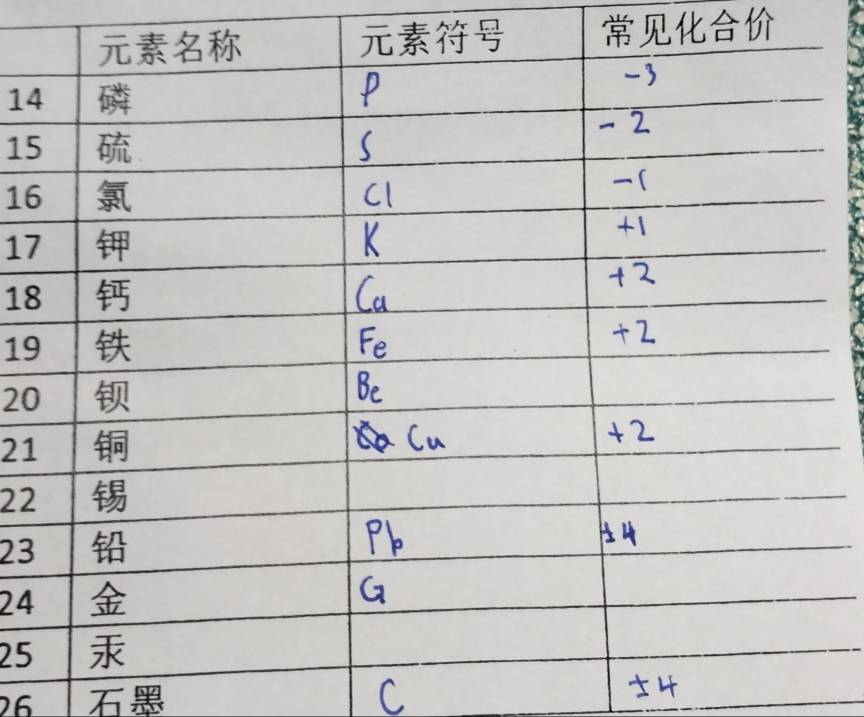 元素名称 元素符号 常见化合价
14 磷 P -3
15 硫 S -2
16 氯 Cl -1
17 钾 K +1
18 钙 Ca +2
19 铁 Fe +2
20 钡 Be
21 铜 Cu +2
22 锡
23 铅 Pb ±4
24 金 G
25 汞
26 石墨 C ±4